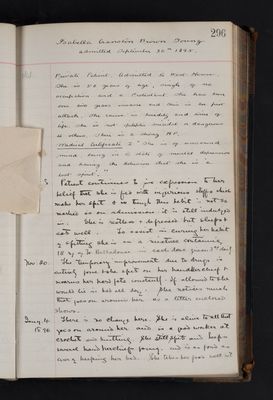 296
Isabella Cranston Brown Young
admitted September 30th 1895.
Private Patient. Admitted to West House.
She is 50 years of age, single of no
occupation and a Protestant. She has been
one year insane and this is her first
attack. The cause is heredity and time of
life. She is not epileptic suicidal or dangerous
to others. There is a strong
Medical Certificate I "She is of unsound
mind being in a state of mental depression
and having the delusion that she is a
lost spirit."
Patient continues to give expression to her
belief that she is fed with injurious stuffs which
make her spit & tho' this habit is not so
marked as on admission it is still indulged
in. She is restless & depressed but sleeps &
eats well. To assist in curing her habit
of spitting she is on a mixture containing
of Belladonna in each dose given daily
Nov 30. The temporary improvement due to drugs is
entirely gone & she spits on her handkerchief &
wearies her hard foes constantly. If allowed to she
would lie in bed all day. She notices much
that goes on around her as a letter enclosed
shows.
Jany 4 There is no change here. She is alive to all that
1896 goes on around her and is a good worker at
crochet and knitting. She still spits and keeps
several handkerchiefs going, and is as fond as
ever of keeping her bed. She takes her food well but